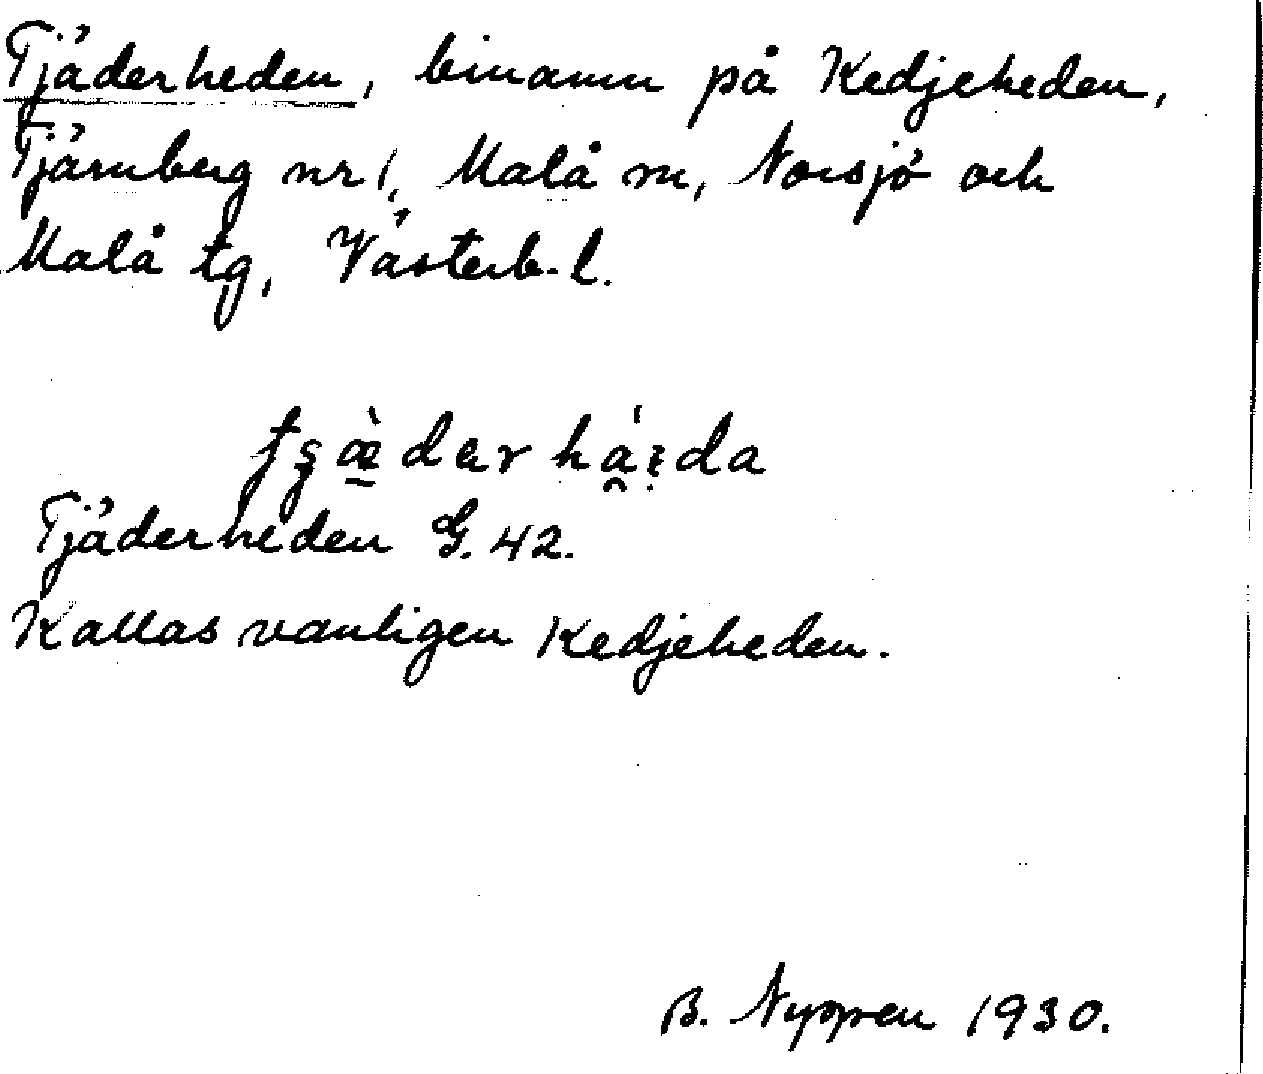 Tjäderheden, binamn på Kedjeheden,
Tjärnberg nr 1, Malå sn, Norsjö och
Malå tg, Västerb. l.
Tjäderheden G. 42.
Kallas vanligen Kedjeheden.
B. Nyppen 1930.